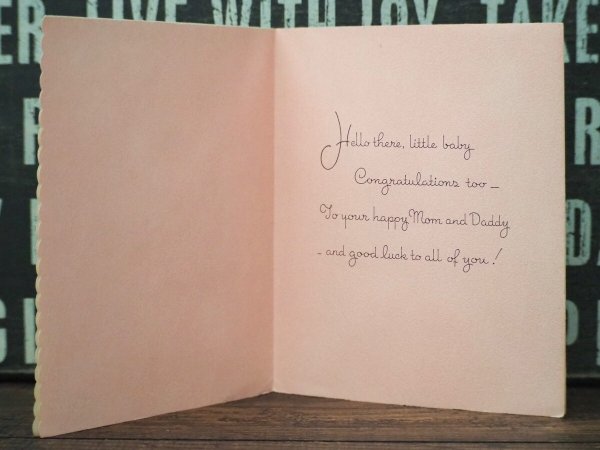 LIVE WITH JOY, TAKE
Hello there, little baby
Congratulations too —
To your happy Mom and Daddy
- and good luck to all of you!